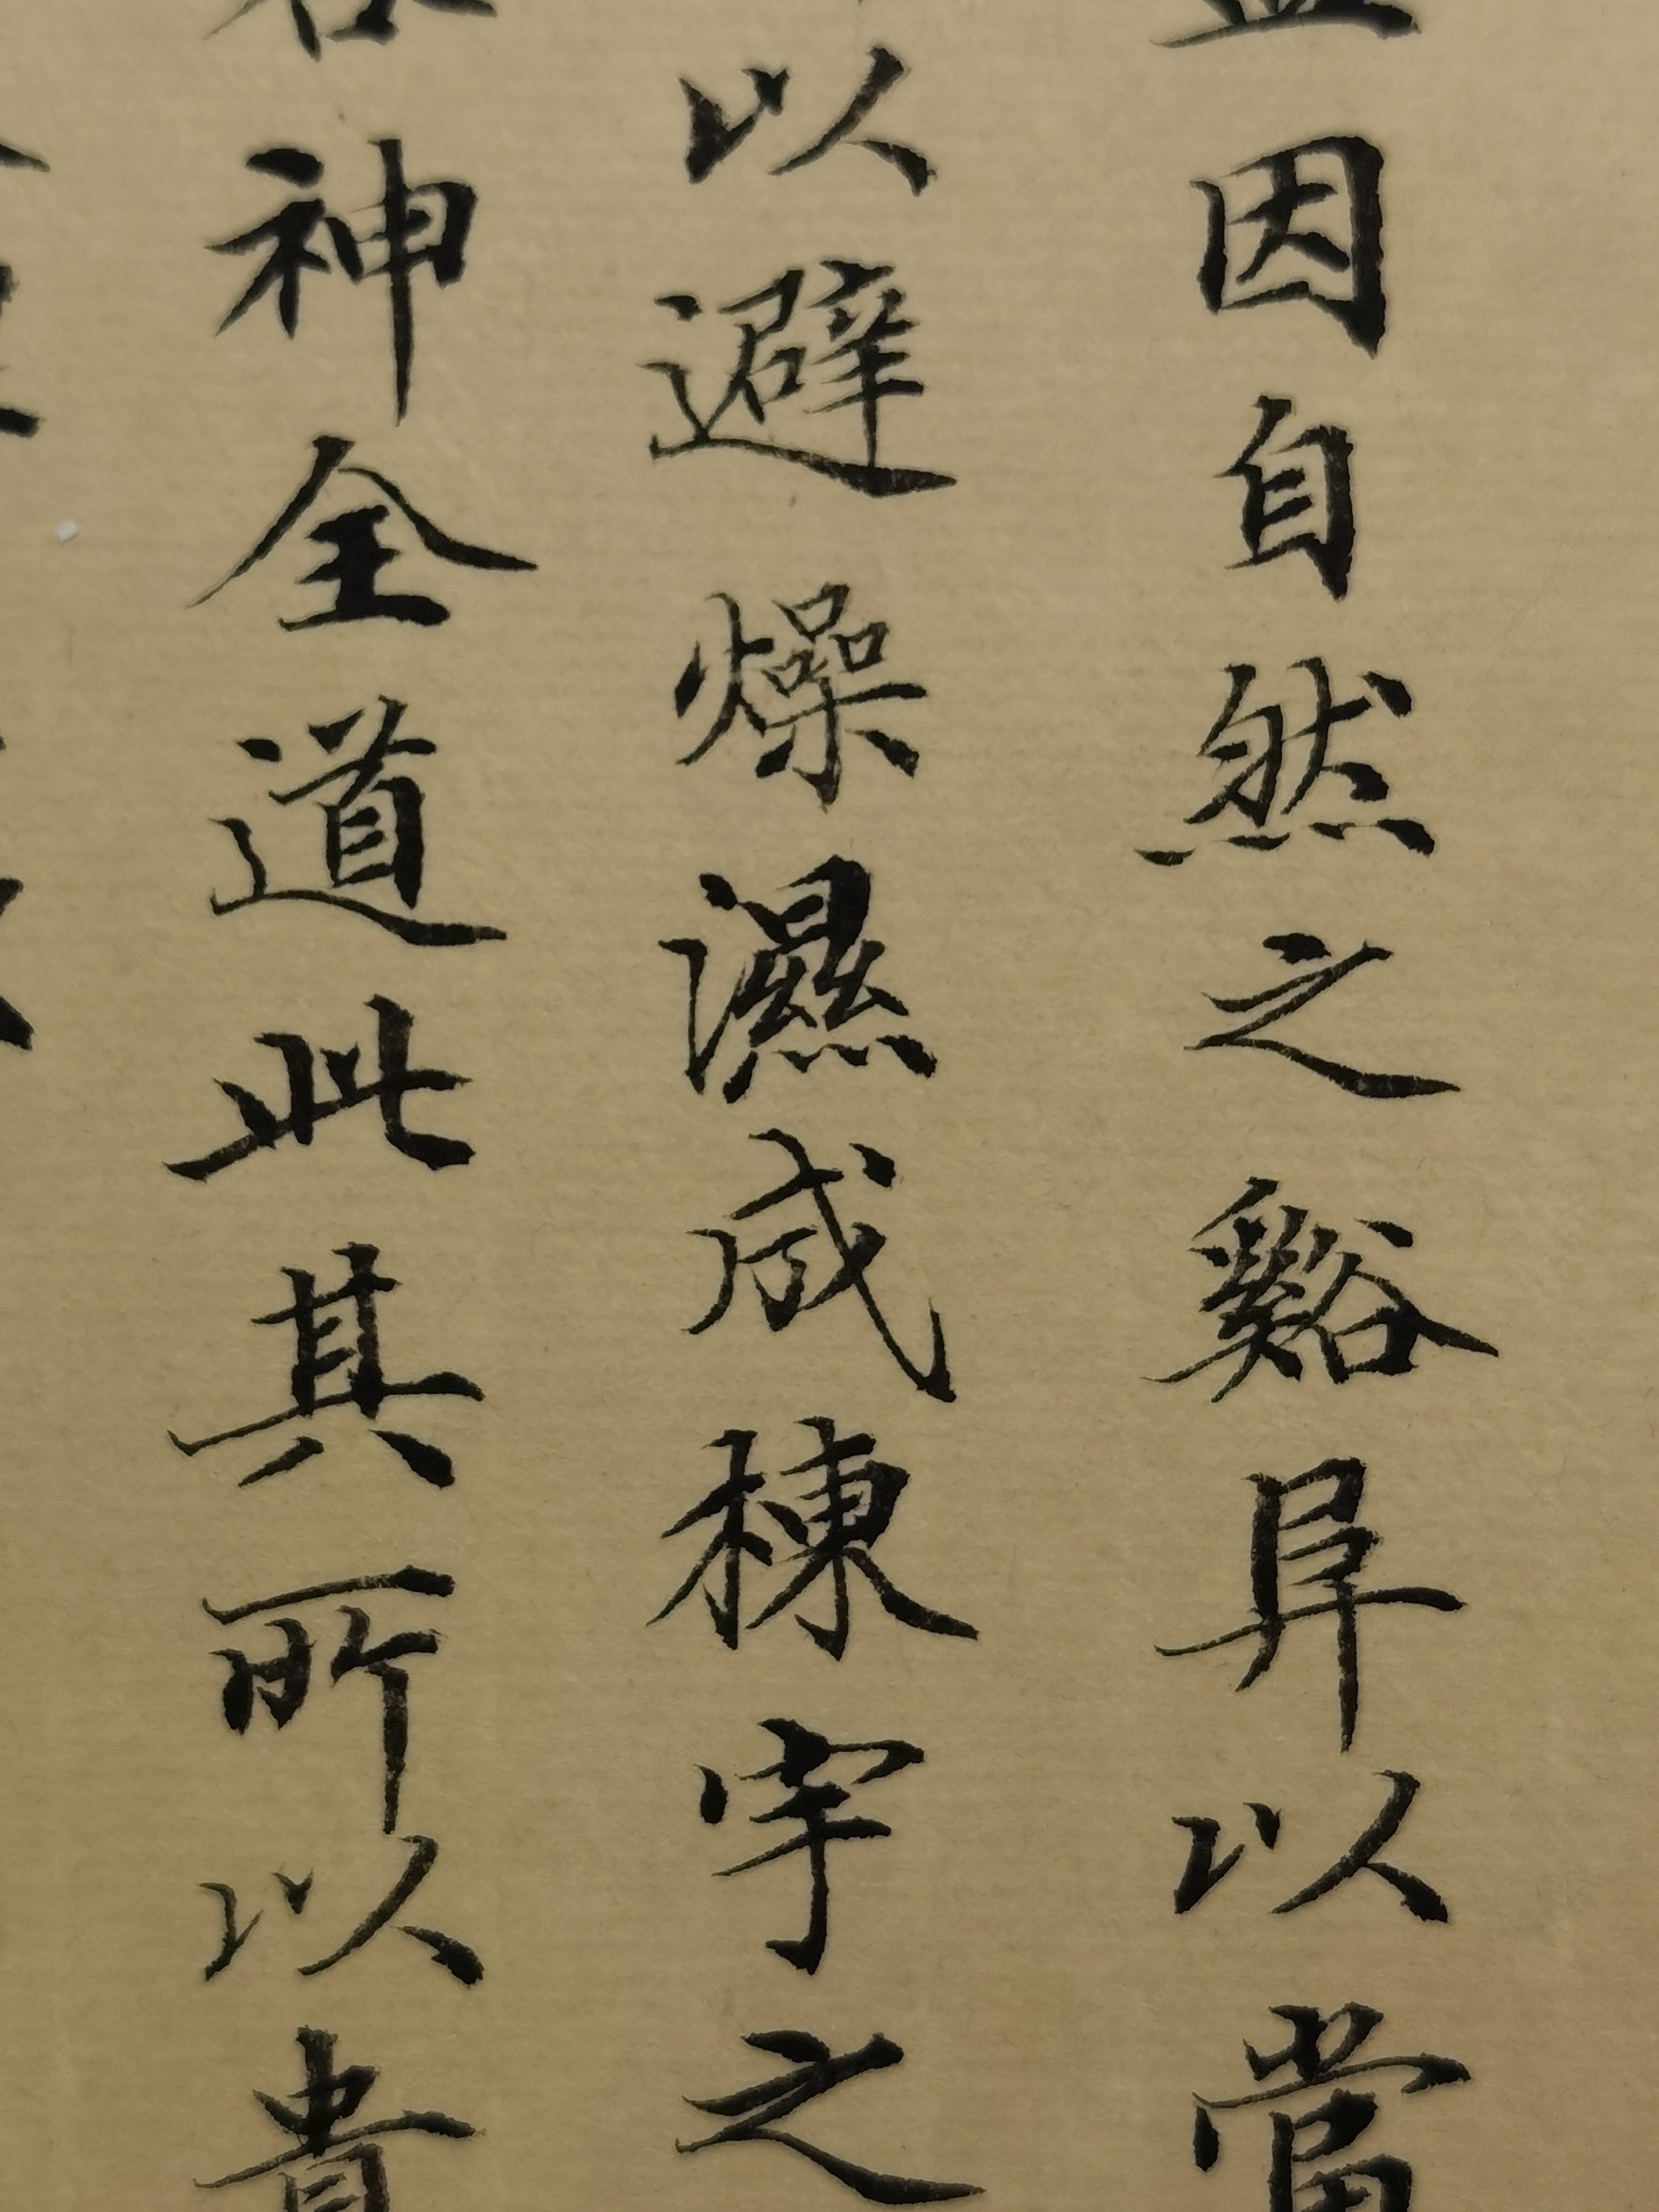 因自然之谿阜以當
以避燥濕成棟宇之
神全道此其所以貴